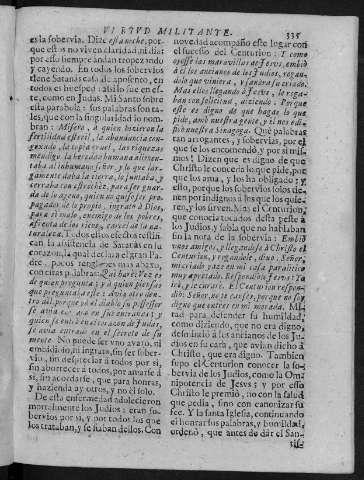 VIRTVD MILITANTE. 335
es la sobervia. Dize esta noche, por-
que estos no viven claridad, ni dia:
por esso siempre andan tropezando
y cayendo. En todos los sobervios
tiene Satanàs casa de aposento, en
todos es huesped: assi lo fue en es-
te, como en Judas. Mi Santo sobre
esta parabola: sus palabras son ta-
les, que con la singularidad lo nom-
bran: Misero, a quien hizieron la
fertilidad esteril, la abundancia con-
gojado, la copia cruel, las riquezas
mendigo. la heredad humana alimen-
tava al inhumano señor, y lo que lar-
gamente dava la tierra, lo juntava, y
cerrava con estrechèz, para ser guar-
da de lo ageno, quien no quiso ser propa-
gador de lo propio, ingrato à Dios,
para si malo, enemigo de los pobres,
afrenta de los ricos, carcel de la na-
turaleza. Todos estos efectos ressisi-
can la assistencia de Satanàs en su
coraçon, la qual declara el gran Pa-
dre, pocos renglones mas abaxo,
con estas palabras: Què harè? Vez es
de quien pregunta; y à quien piensas
que pregunta? avia otro den-
tro del, porque yà el diablo su posseedor
se avia entrado en sus entrañas; y
quien se entrò en el coraçon de Judas,
se avia entrado en el secreto de su
mente. No puede ser uno avaro, ni
embidioso, ni ingrato, sin ser sober-
vio, sin despreciar à todos por si,
sin aborrecer à todos, por amarse à si
sin acordarse, que para honras,
y hazienda ay otros, y no èl solo.
De esta enfermedad adolecieron
mortalmente los Judios: eran so-
bervios por si, y por todos los que
los trataban, y se fiaban dellos. Con
novedad acompaño este lugar con
el sucesso del Centurion: Y como
oyesse las maravillas de Jesvs, embiò
à èl los ancianos de los Judios, rogan-
dole que viniera, y sanàra su criado.
Mas ellos llegando à Jesvs, le roga-
ban con solicitud, diziendo: Porque
este es digno de que hagas lo que
pide, ama nuestra gente, y èl nos edi-
ficò nuestra Sinagoga. Què palabras
tan arrogantes, y sobervias, por el
que se los encomendò, y por si mis-
mos! Dizen que es digno de que
Christo le conceda lo que pide, por-
que los ama, y los ha obligado: y
esso, porque los sobervios solos tie-
nen por indignos à los que los quie-
ren, y los sirven. Mas el Centurion,
que conocia tocados desta peste à
los Judios, y sabia que no hablaban
sin la nota de la sobervia: Embiò
unos amigos, y llegandose à Christo el
Centurion, y rogandole, dixo: Señor,
mi criado yaze en mi casa paralitico
muy apretado. Respondiòle Jesvs: Yo
irè, y le curarè. El Centurion respon-
diò: Señor, no te canses, porque no soy
digno que entres en mi morada. Mi-
tad, para defender su humildad,
como diziendo, que no era digno,
desmintiò à los ancianos de los Ju-
dios en su cara, que avian dicho à
Christo, que era digno. Tambien
supo el Centurion conocer la so-
bervia de los Judios, como la Om-
nipotencia de Jesvs; y por esso
Christo le premiò, no con la salud
que pedia, sino con canonizar su
fee. Y la santa Iglesia, continuando
el honrar sus palabras, y humildad,
ordenò, que antes de dar el San-
tis-